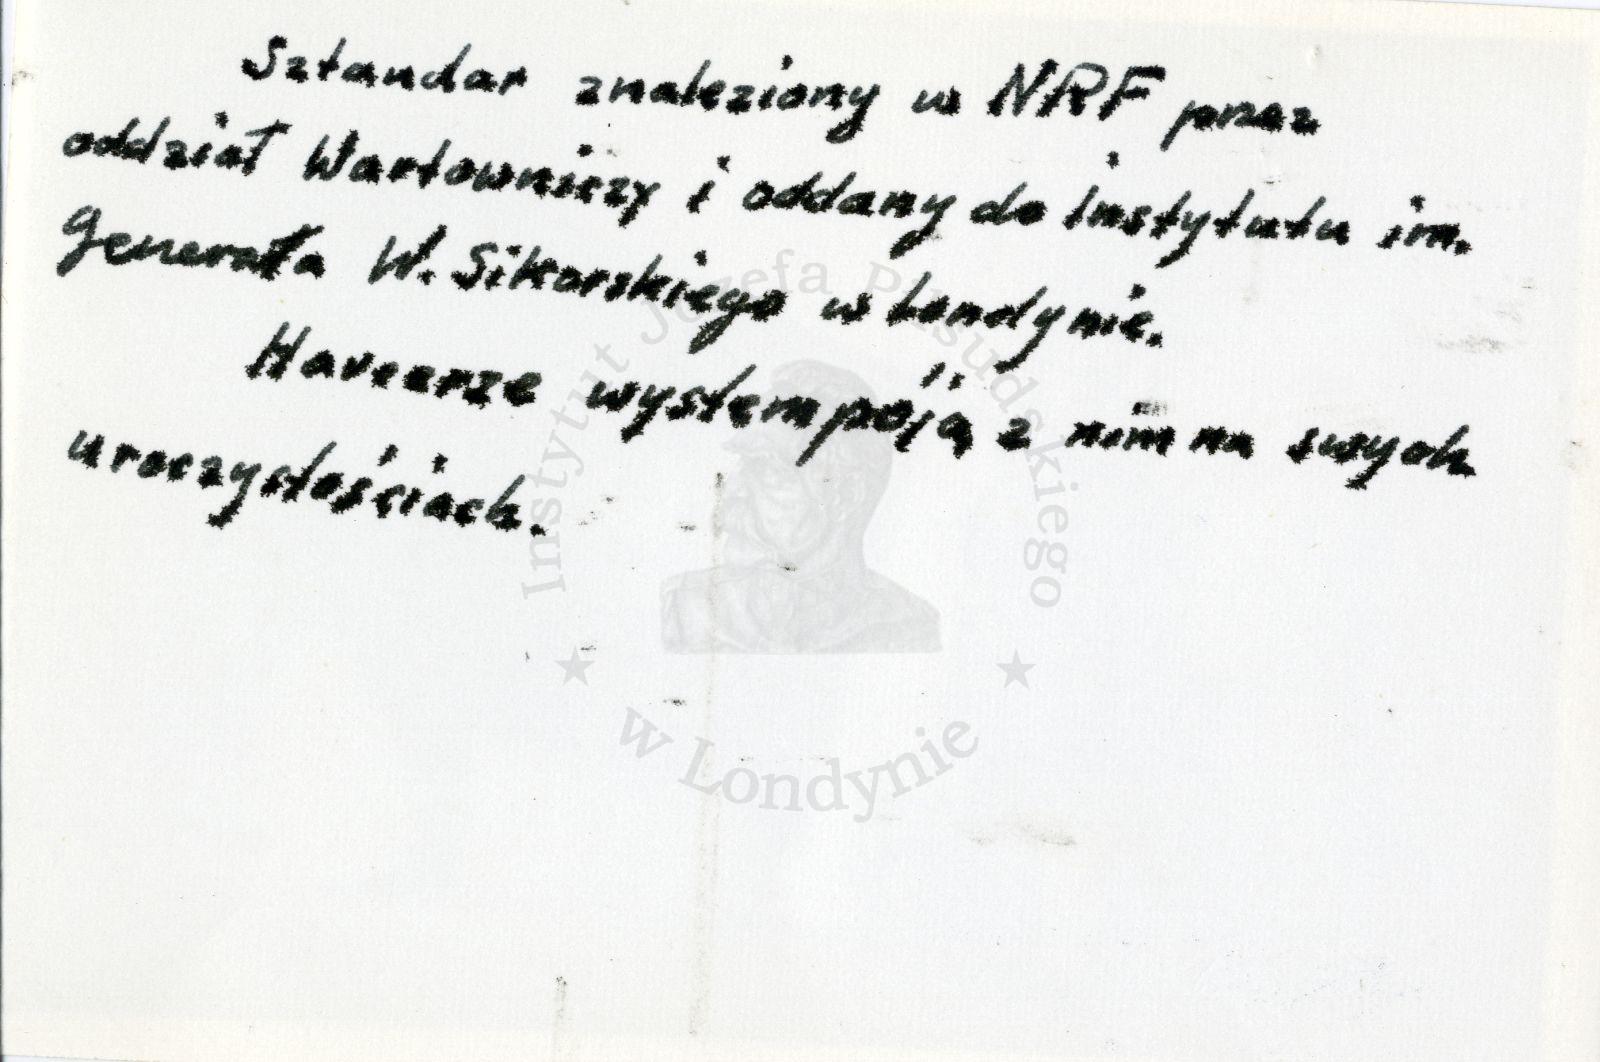 Sztandar znaleziony w NRF przez
oddział Wartowniczy i oddany do instytutu im.
Generała W. Sikorskiego w Londynie.
Harcerze wystempóją z nim na swych
uroczystościach.
Instytut Józefa Piłsudskiego
w Londynie